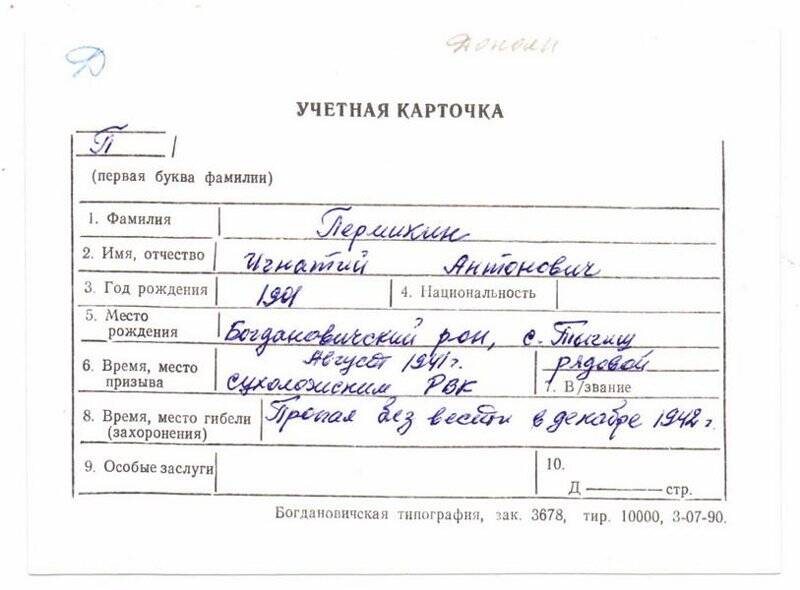 Д
Дополн
УЧЕТНАЯ КАРТОЧКА
П
(первая буква фамилии)
1. Фамилия Пермикин
2. Имя, отчество Игнатий Антонович
3. Год рождения 1901 4. Национальность
5. Место рождения Богдановичский рон, с. Тыгиш
6. Время, место призыва Август 1941г. Сухоложским РВК
рядовой
7. В/звание
8. Время, место гибели (захоронения) Пропал без вести в декабре 1942 г.
9. Особые заслуги
10.
Д ——— стр.
Богдановичская типография, зак. 3678, тир. 10000, 3-07-90.